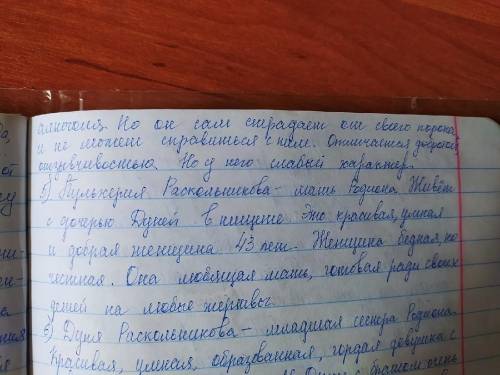 алкоголя. Но он сам страдает от своего порока
и не может справиться с ним. Отличается добротой,
отзывчивостью. Но у него слабый характер.
5) Пульхерия Раскольникова - мать Родиона. Живёт
с дочерью Дуней в нищете. Это красивая, умная
и добрая женщина 43 лет. Женщина бедная, но
честная. Она любящая мать, готовая ради своих
детей на любые жертвы.
6) Дуня Раскольникова - младшая сестра Родиона.
Красивая, умная, образованная, гордая девушка с
с братом очень